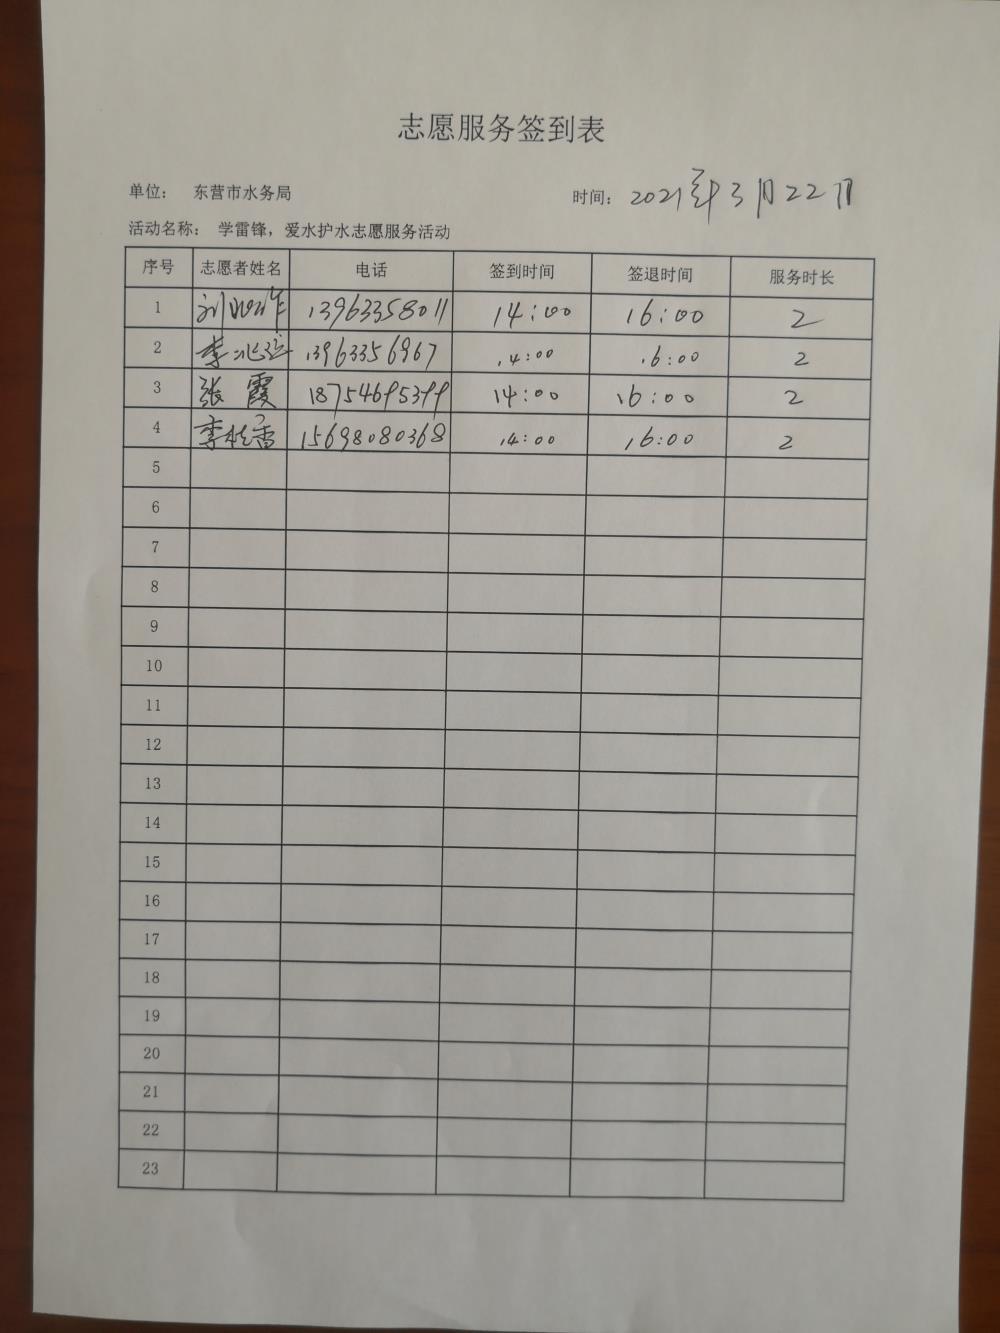 志愿服务签到表
单位： 东营市水务局 时间： 2021年3月22日
活动名称： 学雷锋，爱水护水志愿服务活动
序号 志愿者姓名 电话 签到时间 签退时间 服务时长
1 刘 13963358011 14:00 16:00 2
2 李 13963356967 14:00 16:00 2
3 张霞 14:00 16:00 2
4 李桂香 15698080368 14:00 16:00 2
5
6
7
8
9
10
11
12
13
14
15
16
17
18
19
20
21
22
23